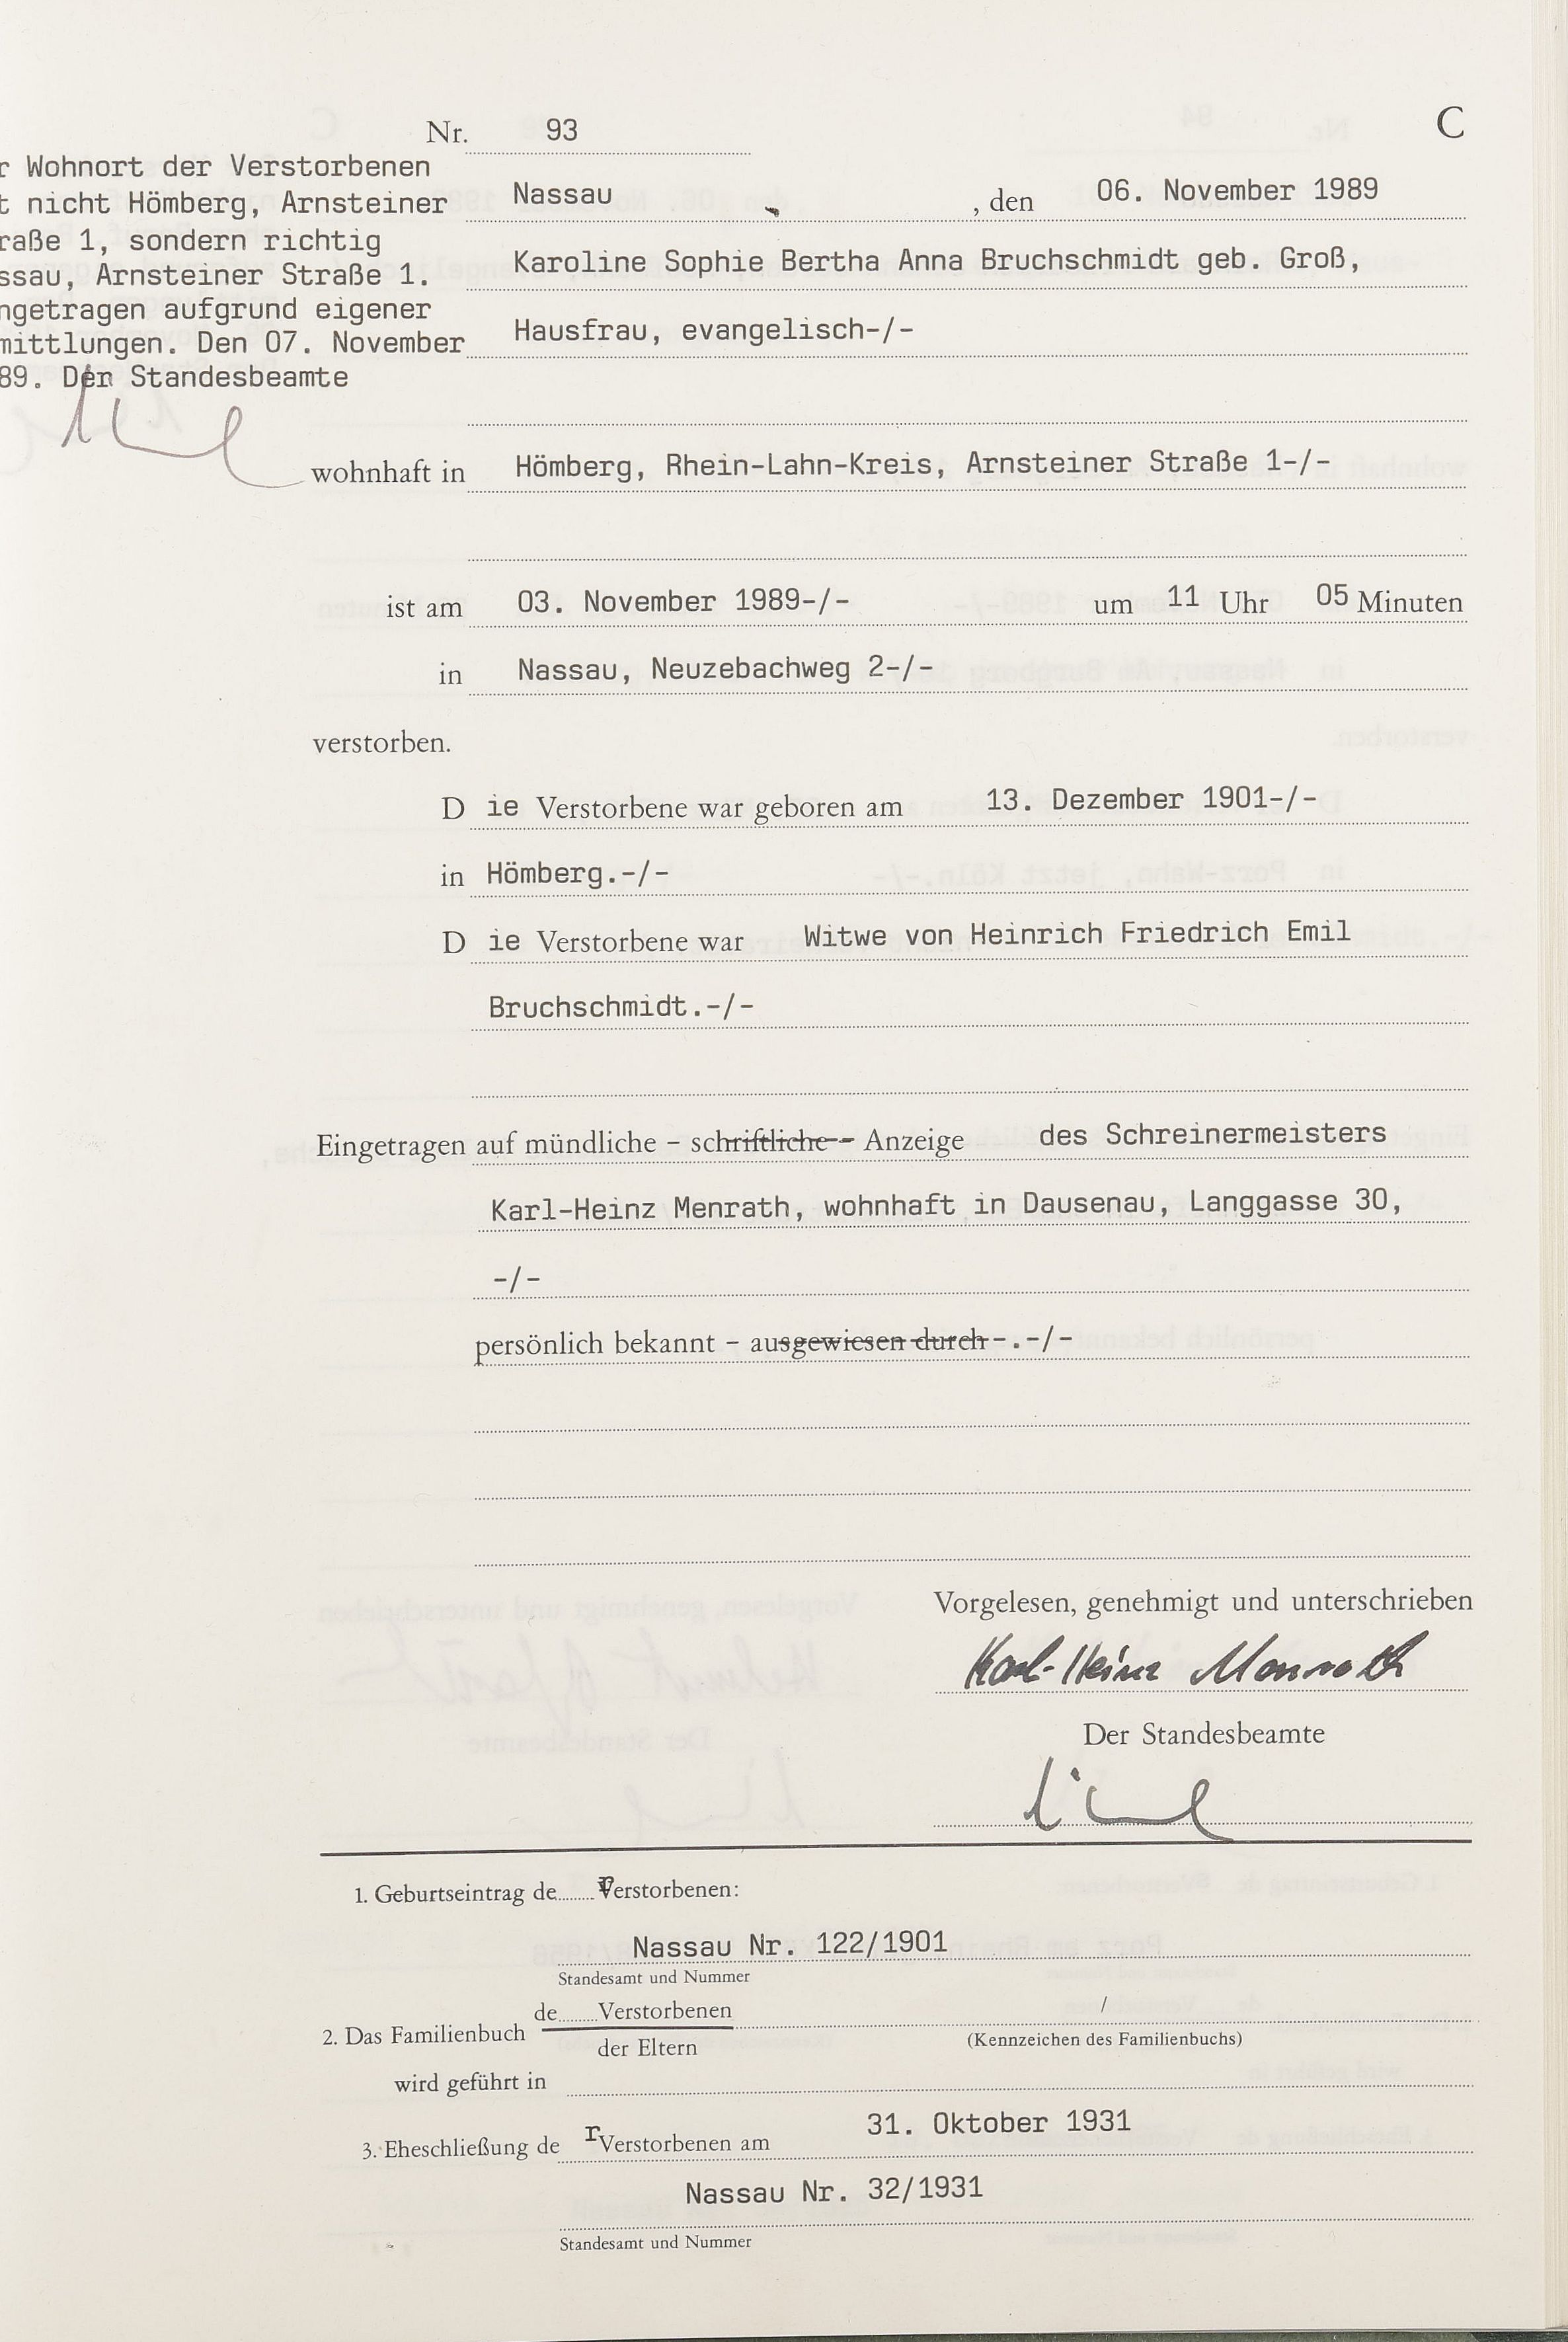 Nr. 93 C
r Wohnort der Verstorbenen
t nicht Hömberg, Arnsteiner
raße 1, sondern richtig
ssau, Arnsteiner Straße 1.
ngetragen aufgrund eigener
mittlungen. Den 07. November
89. Der Standesbeamte
Nassau , den 06. November 1989
Karoline Sophie Bertha Anna Bruchschmidt geb. Groß,
Hausfrau, evangelisch-/-
wohnhaft in Hömberg, Rhein-Lahn-Kreis, Arnsteiner Straße 1-/-
ist am 03. November 1989-/- um 11 Uhr 05 Minuten
in Nassau, Neuzebachweg 2-/-
verstorben.
D ie Verstorbene war geboren am 13. Dezember 1901-/-
in Hömberg.-/-
D ie Verstorbene war Witwe von Heinrich Friedrich Emil
Bruchschmidt.-/-
Eingetragen auf mündliche - schriftliche - Anzeige des Schreinermeisters
Karl-Heinz Menrath, wohnhaft in Dausenau, Langgasse 30,
-/-
persönlich bekannt - ausgewiesen durch-.-/-
Vorgelesen, genehmigt und unterschrieben
Karl-Heinz Menrath
Der Standesbeamte
1. Geburtseintrag de r Verstorbenen:
Nassau Nr. 122/1901
Standesamt und Nummer
2. Das Familienbuch de Verstorbenen /
der Eltern (Kennzeichen des Familienbuchs)
wird geführt in
3. Eheschließung de r Verstorbenen am 31. Oktober 1931
Nassau Nr. 32/1931
Standesamt und Nummer